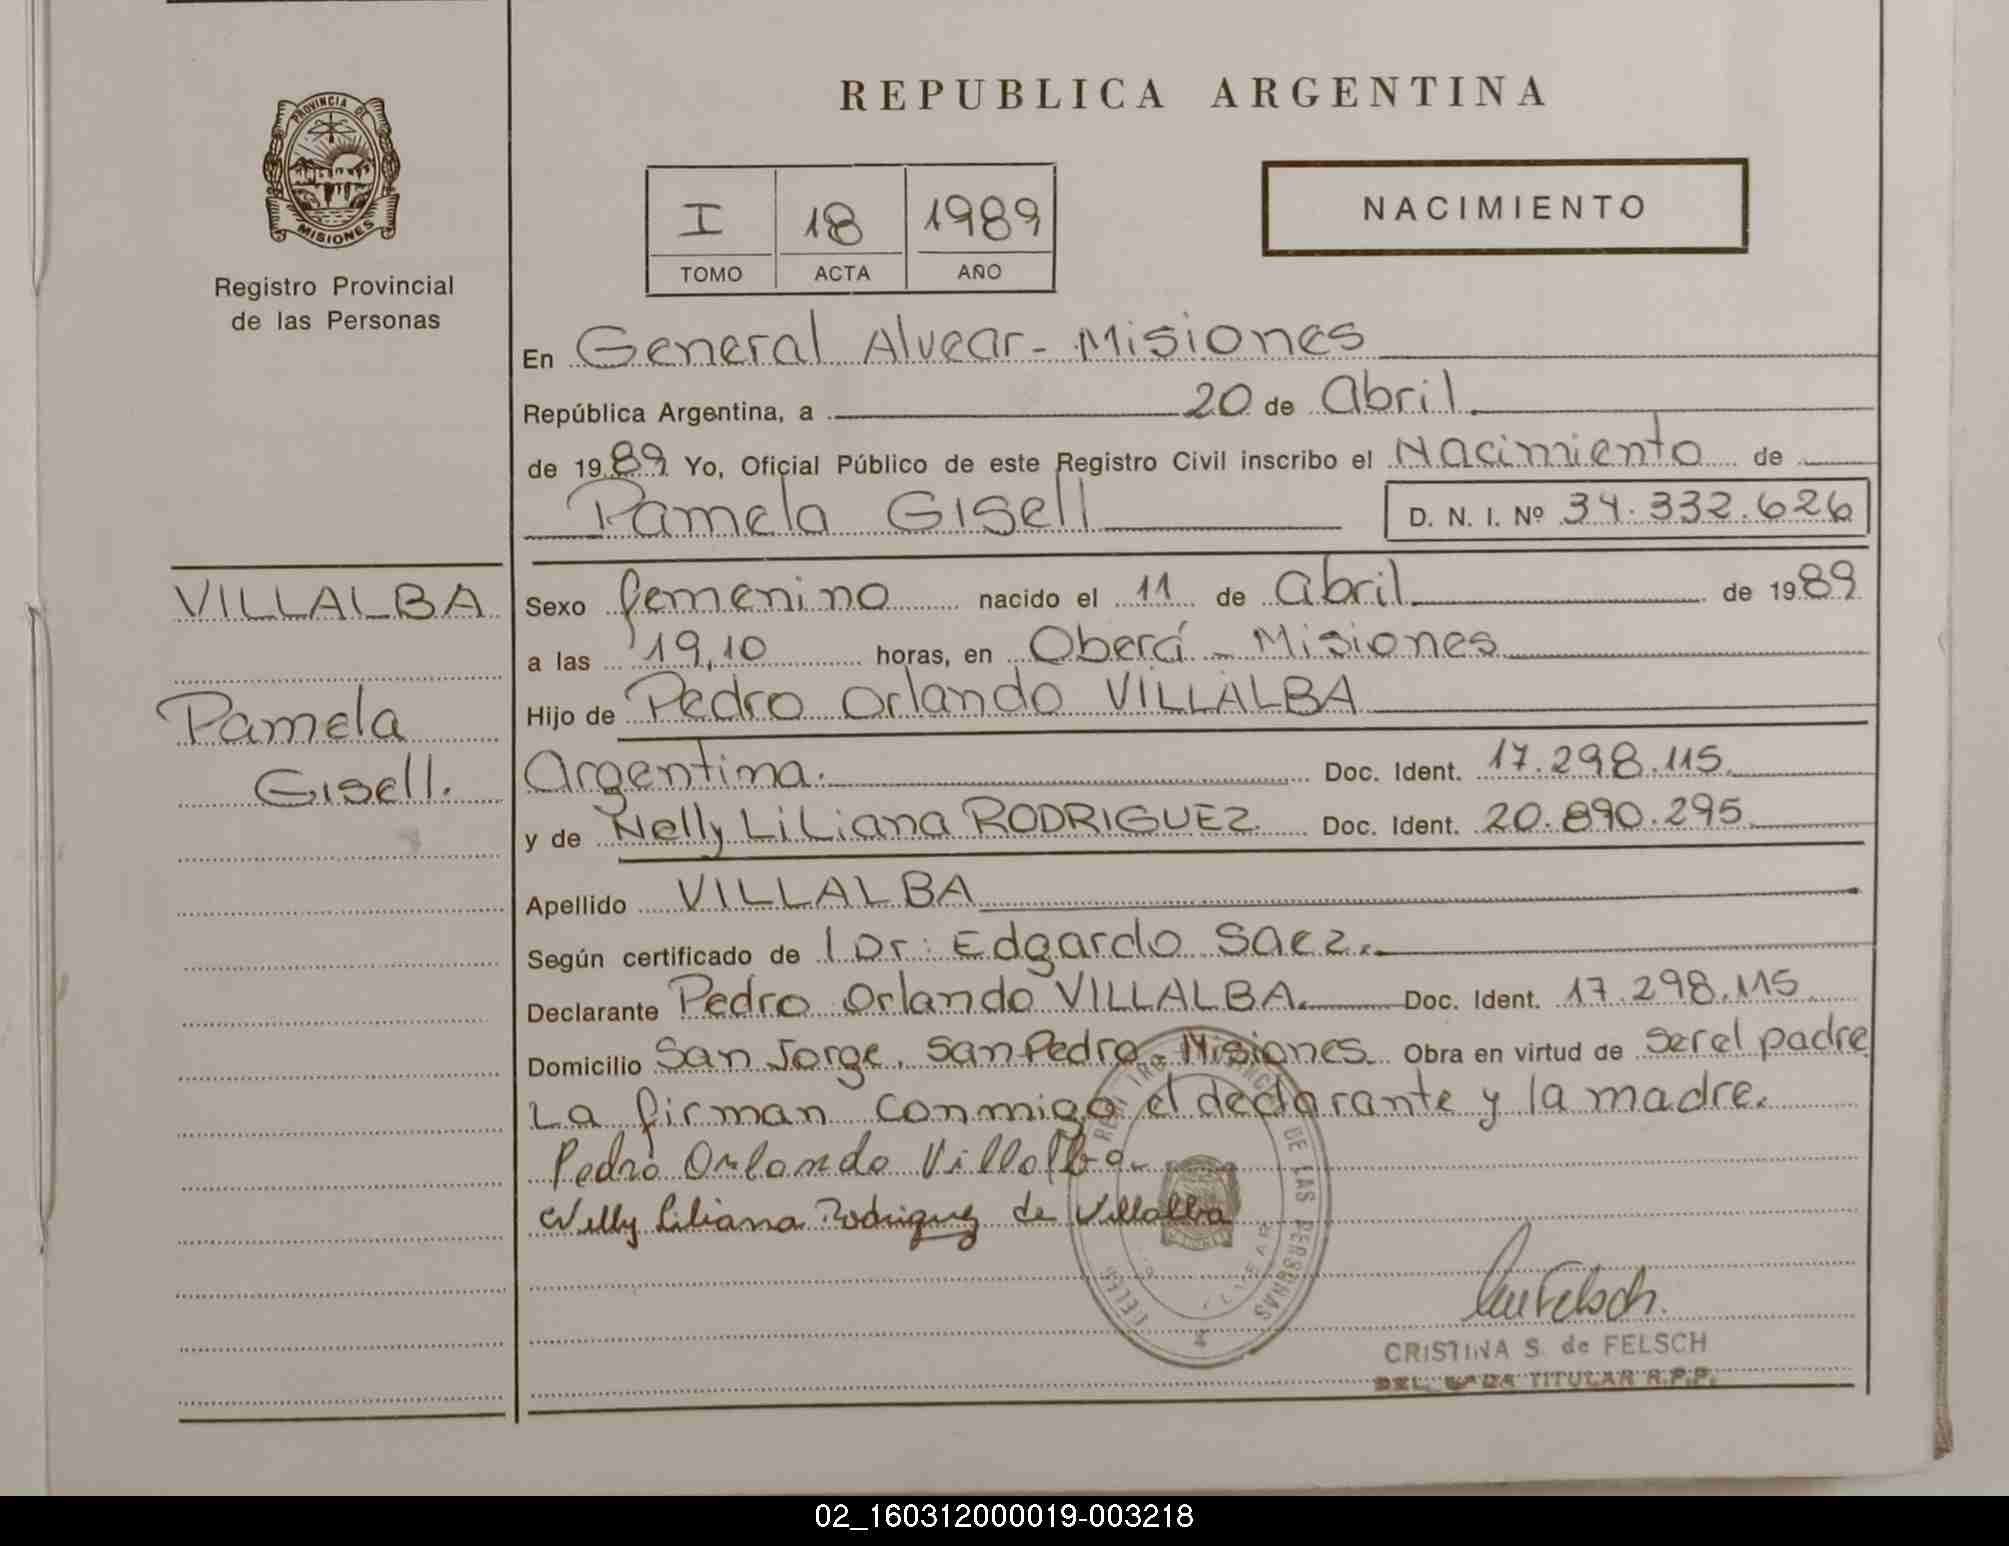 REPUBLICA ARGENTINA
PROVINCIA DE
MISIONES
Registro Provincial
de las Personas
I 18 1989
TOMO ACTA AÑO
NACIMIENTO
En General Alvear - Misiones
República Argentina, a 20 de Abril
de 1989 Yo, Oficial Público de este Registro Civil inscribo el Nacimiento de
Pamela Gisell D. N. I. Nº 34.332.626
VILLALBA
Pamela
Gisell.
Sexo femenino nacido el 11 de Abril de 1989
a las 19,10 horas, en Oberá - Misiones
Hijo de Pedro Orlando VILLALBA
Argentina. Doc. Ident. 17.298.115
y de Nelly Liliana RODRIGUEZ Doc. Ident. 20.890.295
Apellido VILLALBA
Según certificado de l Dr: Edgardo Saez.
Declarante Pedro Orlando VILLALBA. Doc. Ident. 17.298.115
Domicilio San Jorge, San Pedro - Misiones Obra en virtud de ser el padre
La firman conmigo el declarante y la madre.
Pedro Orlando Villalba
Nelly Liliana Rodriguez de Villalba
DE LAS PERSONAS
CRISTINA S. de FELSCH
TITULAR R.P.P.
02_160312000019-003218